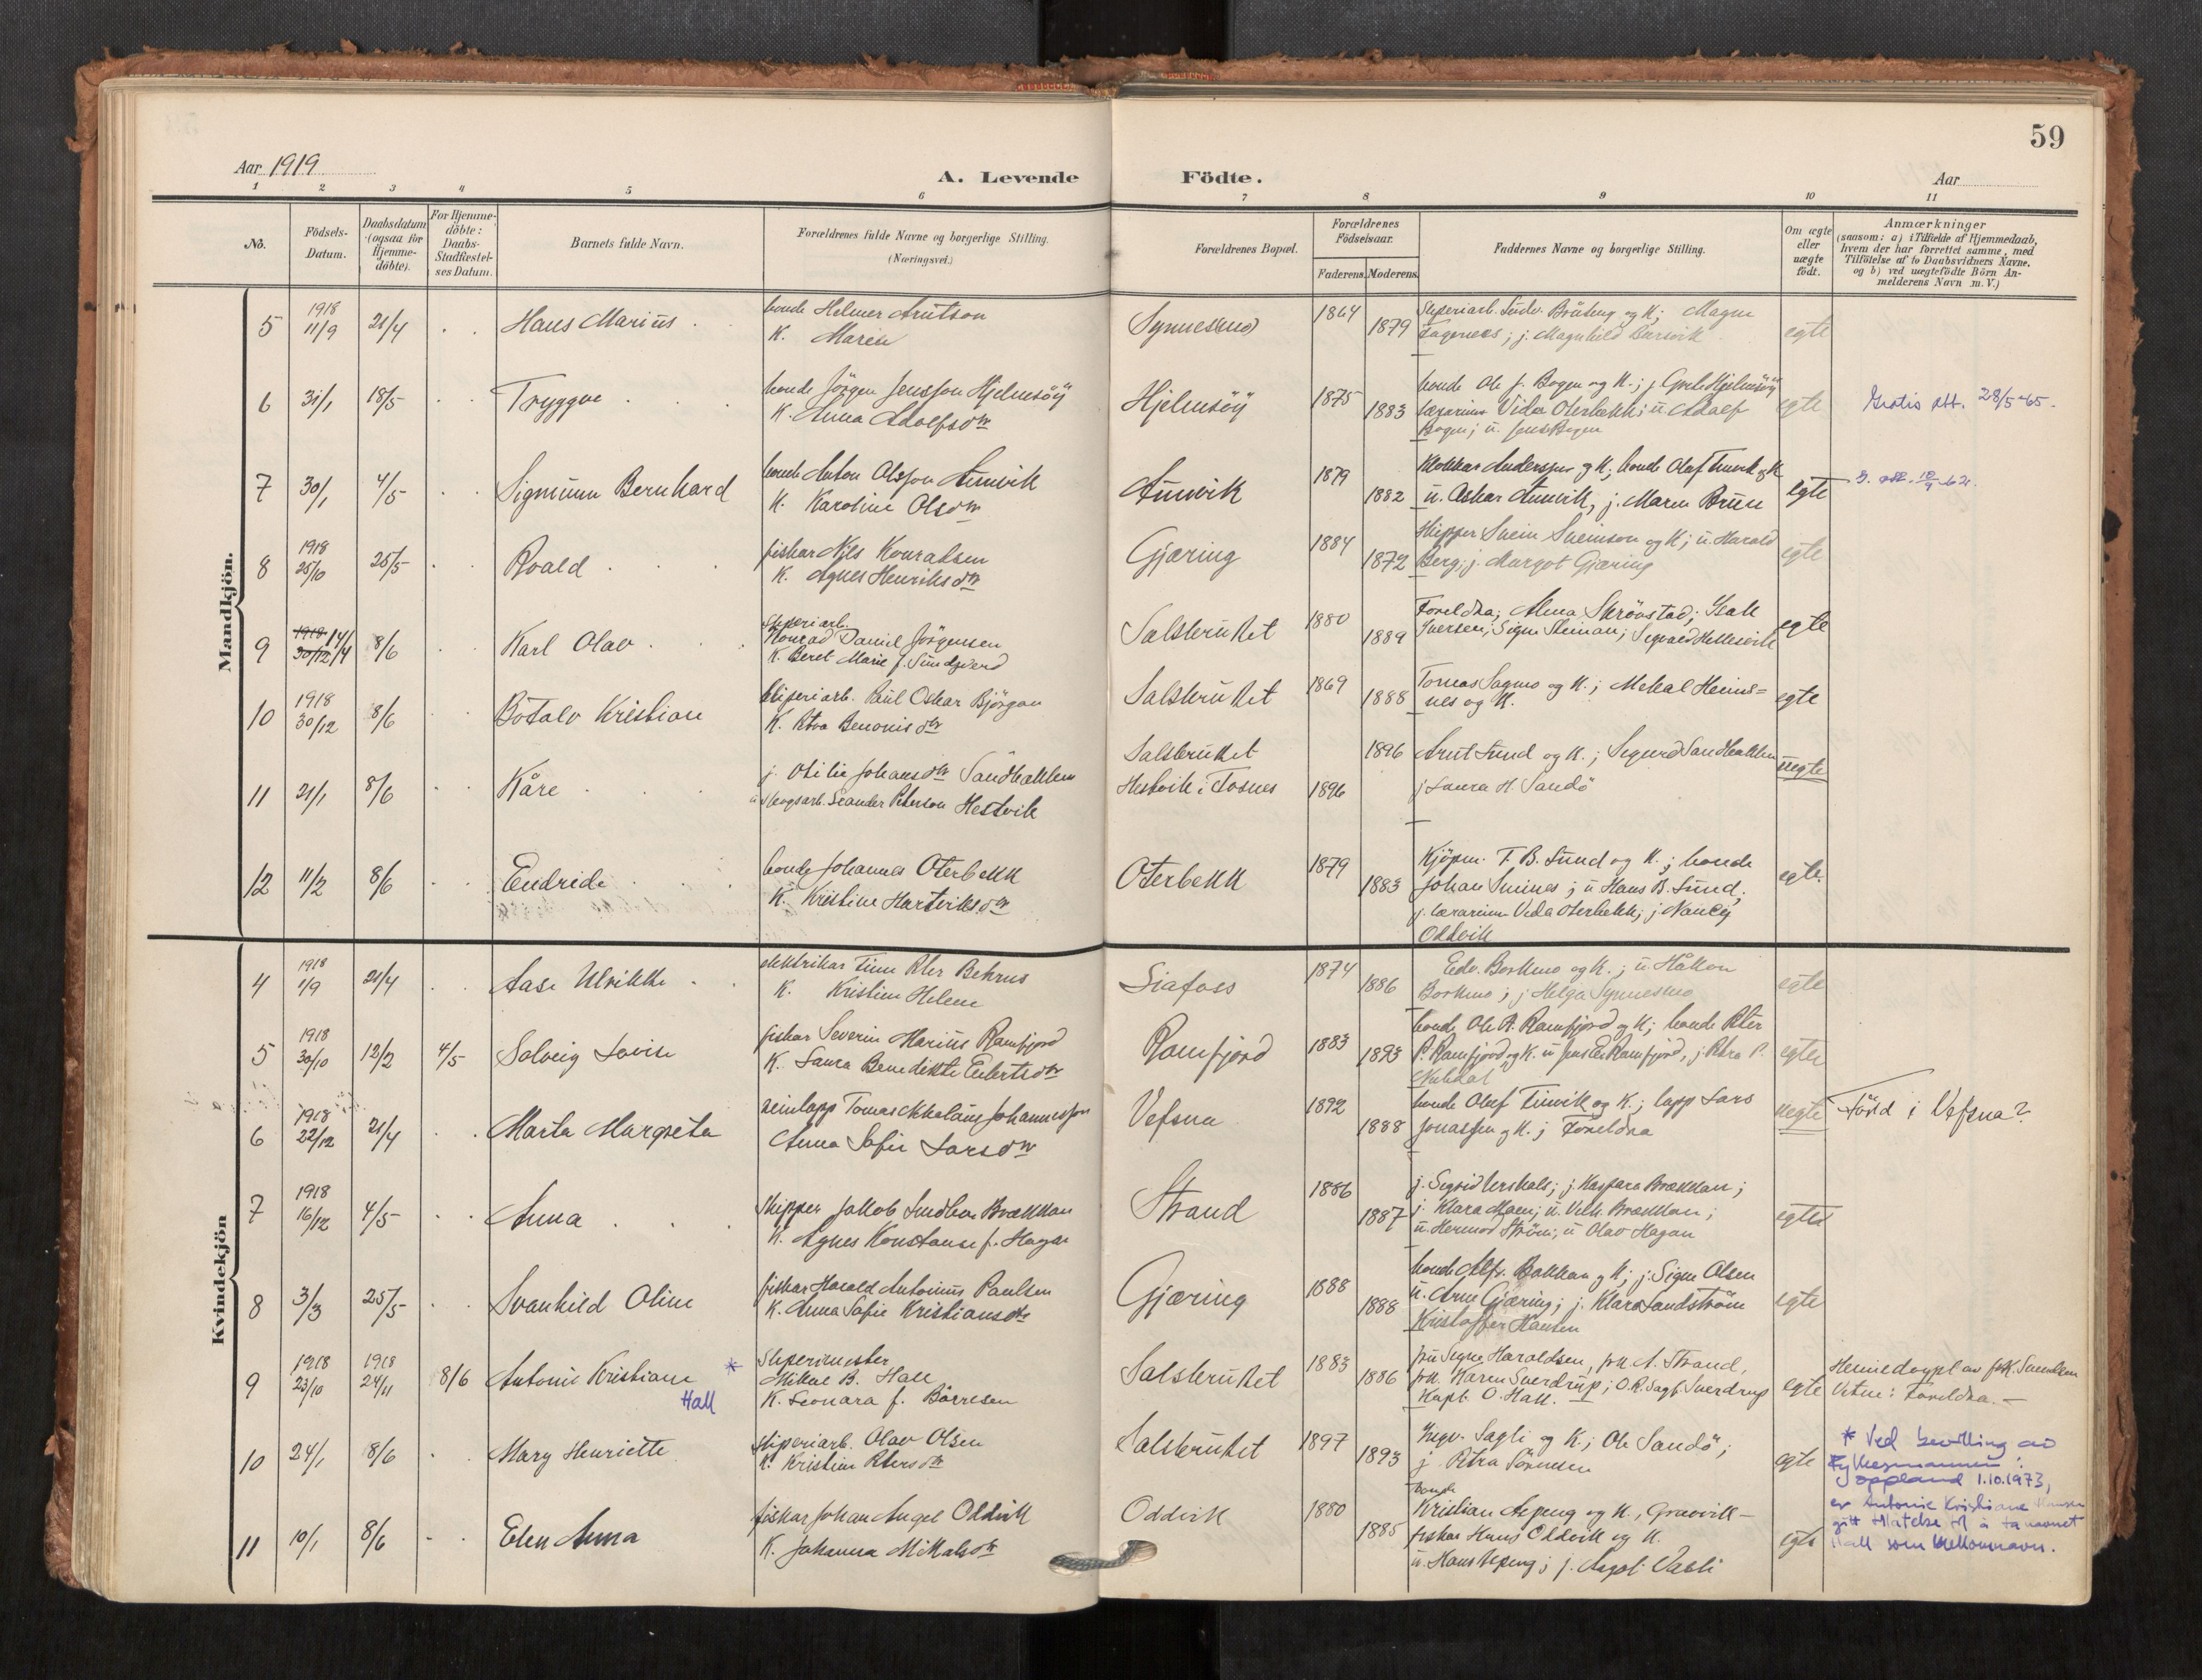 59
Aar 1919
A. Levende Födte.
Aar
1 2 3 4 5 6 7 8 9 10 11
No.
Födsels-Datum.
Daabsdatum (ogsaa for Hjemme-döbte).
For Hjemme-döbte: Daabs-Stadfæstel-ses Datum.
Barnets fulde Navn.
Forældrenes fulde Navne og borgerlige Stilling.
(Næringsvei.)
Forældrenes Bopæl.
Forældrenes Födselsaar.
Faderens. Moderens.
Faddernes Navne og borgerlige Stilling.
Om ægte eller uægte födt.
Anmærkninger
(saasom: a) i Tilfælde af Hjemmedaab,
hvem der har forrettet samme, med
Tilföielse af to Daabsvidners Navne.
og b) ved uægtefödte Börn An-
melderens Navn m. V.)
Mandkjön.
5 1918 11/9 21/4 Hans Marius
bonde Helmer
K. Maren
Synnesmo 1864 1879
egte
6 31/1 18/5 Tryggve
bonde Jörgen Jensson Hjelmsöÿ
K. Anna Adolfsdtr
Hjelmsöÿ 1875 1883
bonde Ole J. Bogen og K.; j. Grete Hjelmsöÿ
lærarinne Vida Oterbekk; ü. Adolf
Bogen; ü. Jens Bogen
egte
Gratis att. 28/5-65.
7 30/1 4/5 Sigmünn Bernhard
bonde Anton Olsson Aünvik
K. Karoline Olsdtr
Aünvik 1879 1882
Klokkar Andersson og K; bonde Olaf og K
ü. Oskar Aünvik, j. Maren Brün
egte
8 1918 25/10 25/5 Roald
fiskar Nils Konradsen
K. Agnes Henriksdtr
Gjæring 1884 1872
Skipper Svein Sveinson og K; ü. Harald
Berg; j. Margot Gjæring
egte
9 1918 30/12 14/4 8/6 Karl Olav
Sliperiarb.
Konrad Daniel Jörgensen
K. Beret Marie f. Sundsverd
Salsbrüket 1880 1889
Foreldra; Alma Skrövstad; Isak
Iversen; Signe Steinan; Sigvald Hellesvik
egte
10 1918 30/12 8/6 Botalv Kristian
Sliperiarb. Paul Oskar Björgan
K. Petra Benonisdtr
Salsbrüket 1869 1888
Tomas Sagmo og K.; Mekal Heims=
nes og K.
egte
11 21/1 8/6 Kåre
j. Otilie Johansdtr Sandbakken
ü. skogsarb. Leander Peterson Hestvik
Salsbrüket 1896
Hestvik i Fosnes 1896
Arnt Sünd og K.; Sigurd Sandbakken
j. Laura H. Sandö
üegte
12 11/2 8/6 Endride
bonde Johannes Oterbekk
K. Kristine Hartviksdtr
Oterbekk 1879 1883
Kjöpm. T. B. Sünd og K.; bonde
Johan Smines; ü Hans B. Sünd;
j. lærarinne Vida Oterbekk; j. Nancÿ
Oddvik
egte
Kvindekjön
4 1918 1/9 21/4 Aase Ulrikke
elektrikar Finn Peter Behrns
K. Kristine Helene
Siafoss 1874 1886
Edv. Borkmo og K.; ü Håkon
Borkmo; j Helga Synnesmo
egte
5 1918 30/10 12/2 4/5 Solveig Lovise
fiskar Severin Marius Ramfjord
K. Laura Benedikte Eilertsdtr
Ramfjord 1883 1893
bonde Ole A. Ramfjord og K; bonde Peter
P. Ramfjord og K. ü Jens Ed. Ramfjord, j. Petra P.
egte
6 1918 22/12 21/4 Marta Margreta
reinlapp Tomas Johannessen
Anna Sofie Larsdtr
Vefsna 1892 1888
bonde Olaf og K.; lapp Lars
Jonassen og K.; Foreldra
üegte
Född i Vefsna?
7 1918 16/12 4/5 Anna
Skipper Jakob Brækkan
K. Agnes Konstanse f. Hagan
Strand 1886 1887
j. Sigrid; j. Kaspara Brækkan;
j. Klara Moen; ü. Vilh. Brækkan;
ü. Hermod Ström; ü Olav Hagan
egte
8 3/3 25/5 Svanhild Oline
fiskar Harald Antonius Paulsen
K. Anna Sofie Kristiansdtr
Gjæring 1888 1888
bonde Alfr. Bakkan og K; j. Signe Olsen
ü. Arne Gjæring; j. Klara Sandström
Kristoffer Hansen
egte
9 1918 23/10 1918 24/11 8/6 Antonie Kristiane * Hall
Sliperimester
Mikal B. Hall
K. Leonara f. Börresen
Salsbrüket 1883 1886
frü Signe Haraldsen, frk. A. Strand,
frk. Karen Sverdrüp; O.R.Sagf. Sverdrup
Kapt. O. Hall.
egte
Heimedoypt av
Vitne: Foreldra. —
10 24/1 8/6 Mary Henriette
Sliperiarb. Olav Olsen
K. Kristine Petersdtr
Salsbrüket 1897 1893
Ingv. Sagli og K.; Ole Sandö;
j. Petra Sörensen
egte
* Ved bevilling av
Fylkesmannen i
Oppland 1.10.1973,
er Antonie Kristiane Hansen
gitt tillatelse til å ta navnet
Hall som mellomnavn.
11 10/1 8/6 Elen Anna
fiskar Johan Angel Oddvik
K. Johanna Mikalsdtr
Oddvik 1880 1885
bonde
Kristian Aspeng og K., Gravvik —
fiskar Hans Oddvik og K.
ü. Hans Aspeng; j. Vasli
egte